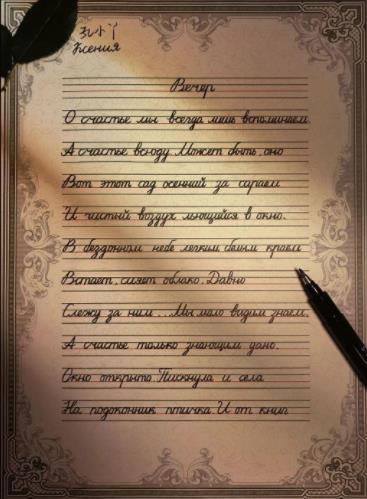 孔小丫
Ксения
Вечер
О счастье мы всегда лишь вспоминаем.
А счастье всюду. Может быть, оно
Вот этот сад осенний за сараем
И чистый воздух льющийся в окно.
В бездонном небе легким белым краем
Встает, сияет облако. Давно
Слежу за ним... Мы мало видим, знаем,
А счастье только знающим дано.
Окно открыто. Пискнула и села
На подоконник птичка. И от книг